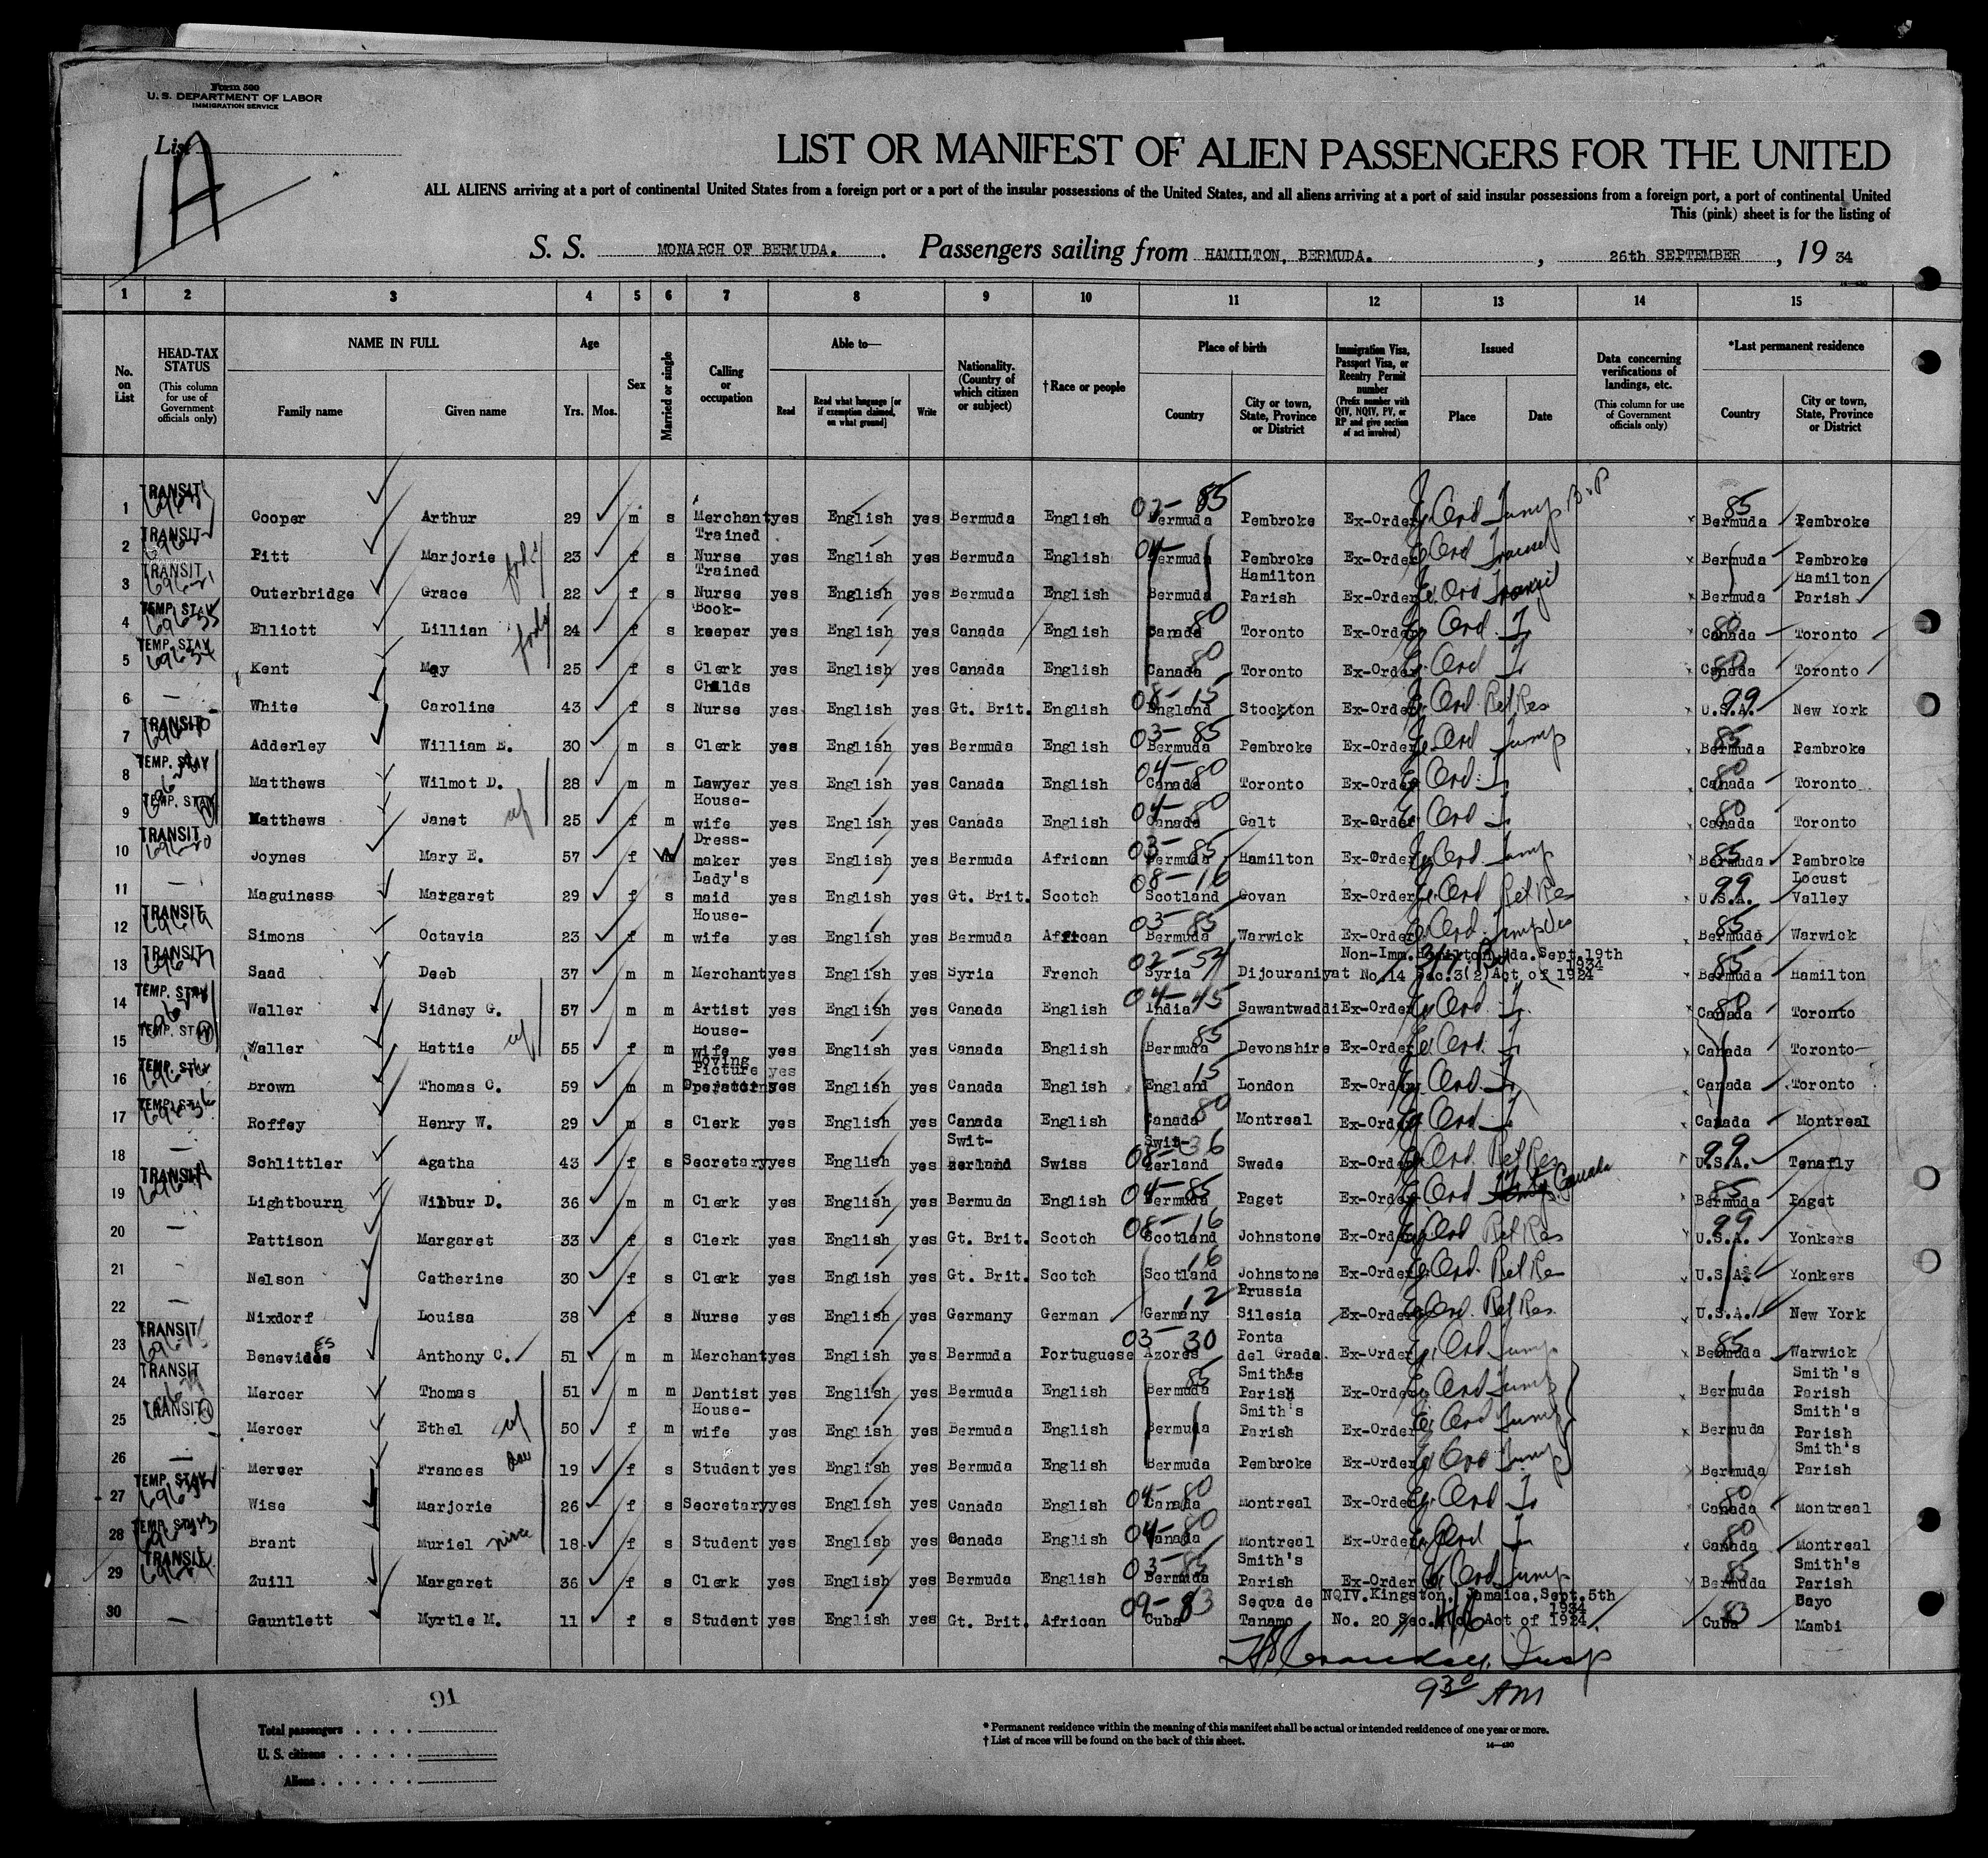 Form 500
U. S. DEPARTMENT OF LABOR
IMMIGRATION SERVICE
List
1A
LIST OR MANIFEST OF ALIEN PASSENGERS FOR THE UNITED
ALL ALIENS arriving at a port of continental United States from a foreign port or a port of the insular possessions of the United States, and all aliens arriving at a port of said insular possessions from a foreign port, a port of continental United
This (pink) sheet is for the listing of
S. S. MONARCH OF BERMUDA. Passengers sailing from HAMILTON, BERMUDA. , 26th SEPTEMBER , 19 34
1 2 3 4 5 6 7 8 9 10 11 12 13 14 15
No. on List
HEAD-TAX STATUS (This column for use of Government officials only)
NAME IN FULL Family name Given name
Age Yrs. Mos.
Sex
Married or single
Calling or occupation
Able to— Read Read what language [or if exemption claimed, on what ground] Write
Nationality. (Country of which citizen or subject)
† Race or people
Place of birth Country City or town, State, Province or District
Immigration Visa, Passport Visa, or Reentry Permit number (Prefix number with QIV, NQIV, PV, or RP and give section of act involved)
Issued Place Date
Data concerning verifications of landings, etc. (This column for use of Government officials only)
*Last permanent residence Country City or town, State, Province or District
1 TRANSIT Cooper Arthur 29 m s Merchant yes English yes Bermuda English 02-85 Bermuda Pembroke Ex-Order 85 Bermuda Pembroke
2 TRANSIT Pitt Marjorie 23 f s Trained Nurse yes English yes Bermuda English 04- Bermuda Pembroke Ex-Order Transit Bermuda Pembroke
3 TRANSIT Outerbridge Grace 22 f s Trained Nurse yes English yes Bermuda English Bermuda Hamilton Parish Ex-Order Transit Bermuda Hamilton Parish
4 TEMP. STAY Elliott Lillian 24 f s Book-keeper yes English yes Canada English 80 Canada Toronto Ex-Order 80 Canada Toronto
5 TEMP. STAY Kent May 25 f s Clerk yes English yes Canada English 80 Canada Toronto Ex-Order 80 Canada Toronto
6 — White Caroline 43 f s Childs Nurse yes English yes Gt. Brit. English 08-15 England Stockton Ex-Order Ret Res 99 U.S.A. New York
7 TRANSIT Adderley William E. 30 m s Clerk yes English yes Bermuda English 03-85 Bermuda Pembroke Ex-Order 85 Bermuda Pembroke
8 TEMP. STAY Matthews Wilmot D. 28 m m Lawyer yes English yes Canada English 04-80 Canada Toronto Ex-Order 80 Canada Toronto
9 TEMP. STAY Matthews Janet wf 25 f m House-wife yes English yes Canada English 04-80 Canada Galt Ex-Order 80 Canada Toronto
10 TRANSIT Joynes Mary E. 57 f W Dress-maker yes English yes Bermuda African 03-85 Bermuda Hamilton Ex-Order 85 Bermuda Pembroke
11 — Maguiness Margaret 29 f s Lady's maid yes English yes Gt. Brit. Scotch 08-16 Scotland Govan Ex-Order Ret Res 99 U.S.A. Locust Valley
12 TRANSIT Simons Octavia 23 f m House-wife yes English yes Bermuda African 03-85 Bermuda Warwick Ex-Order 85 Bermuda Warwick
13 TRANSIT Saad Deeb 37 m m Merchant yes English yes Syria French 02-57 Syria Dijouraniyat Non-Imm. Hamilton, Bda. Sept. 19th 1934 No. 14 Sec. 3(2) Act of 1924 85 Bermuda Hamilton
14 TEMP. STAY Waller Sidney G. 57 m m Artist yes English yes Canada English 04-45 India Sawantwaddi Ex-Order 80 Canada Toronto
15 TEMP. STAY Waller Hattie wf 55 f m House-wife yes English yes Canada English 85 Bermuda Devonshire Ex-Order Canada Toronto
16 TEMP. STAY Brown Thomas C. 59 m m Moving Picture Operator yes English yes Canada English 15 England London Ex-Order Canada Toronto
17 TEMP. STAY Roffey Henry W. 29 m s Clerk yes English yes Canada English 80 Canada Montreal Ex-Order Canada Montreal
18 — Schlittler Agatha 43 f s Secretary yes English yes Swit-zerland Swiss 08-36 Swit-zerland Swede Ex-Order Ret Res 99 U.S.A. Tenafly
19 TRANSIT Lightbourn Wilbur D. 36 m m Clerk yes English yes Bermuda English 04-85 Bermuda Paget Ex-Order Canada 85 Bermuda Paget
20 — Pattison Margaret 33 f s Clerk yes English yes Gt. Brit. Scotch 08-16 Scotland Johnstone Ex-Order Ret Res 99 U.S.A. Yonkers
21 — Nelson Catherine 30 f s Clerk yes English yes Gt. Brit. Scotch 16 Scotland Johnstone Ex-Order Ret Res U.S.A. Yonkers
22 — Nixdorf Louisa 38 f s Nurse yes English yes Germany German 12 Germany Prussia Silesia Ex-Order Ret Res U.S.A. New York
23 TRANSIT Benevides Anthony C. 51 m m Merchant yes English yes Bermuda Portuguese 03-30 Azores Ponta del Grada. Ex-Order 85 Bermuda Warwick
24 TRANSIT Mercer Thomas 51 m m Dentist yes English yes Bermuda English 85 Bermuda Smith's Parish Ex-Order Bermuda Smith's Parish
25 TRANSIT Mercer Ethel wf 50 f m House-wife yes English yes Bermuda English Bermuda Smith's Parish Ex-Order Bermuda Smith's Parish
26 — Mercer Frances dau 19 f s Student yes English yes Bermuda English Bermuda Pembroke Ex-Order Bermuda Smith's Parish
27 TEMP. STAY Wise Marjorie 26 f s Secretary yes English yes Canada English 04-80 Canada Montreal Ex-Order 80 Canada Montreal
28 TEMP. STAY Brant Muriel niece 18 f s Student yes English yes Canada English 04-80 Canada Montreal Ex-Order 80 Canada Montreal
29 TRANSIT Zuill Margaret 36 f s Clerk yes English yes Bermuda English 03-85 Bermuda Smith's Parish Ex-Order 85 Bermuda Smith's Parish
30 — Gauntlett Myrtle M. 11 f s Student yes English yes Gt. Brit. African 09-83 Cuba Sequa de Tanamo NQIV. Kingston, Jamaica, Sept. 5th 1934 No. 20 Sec. Act of 1924. 83 Cuba Cayo Mambi
Insp
9 30 AM
91
Total passengers . . . .
U. S. citizens . . . . .
Aliens . . . . . .
* Permanent residence within the meaning of this manifest shall be actual or intended residence of one year or more.
† List of races will be found on the back of this sheet.
14—430